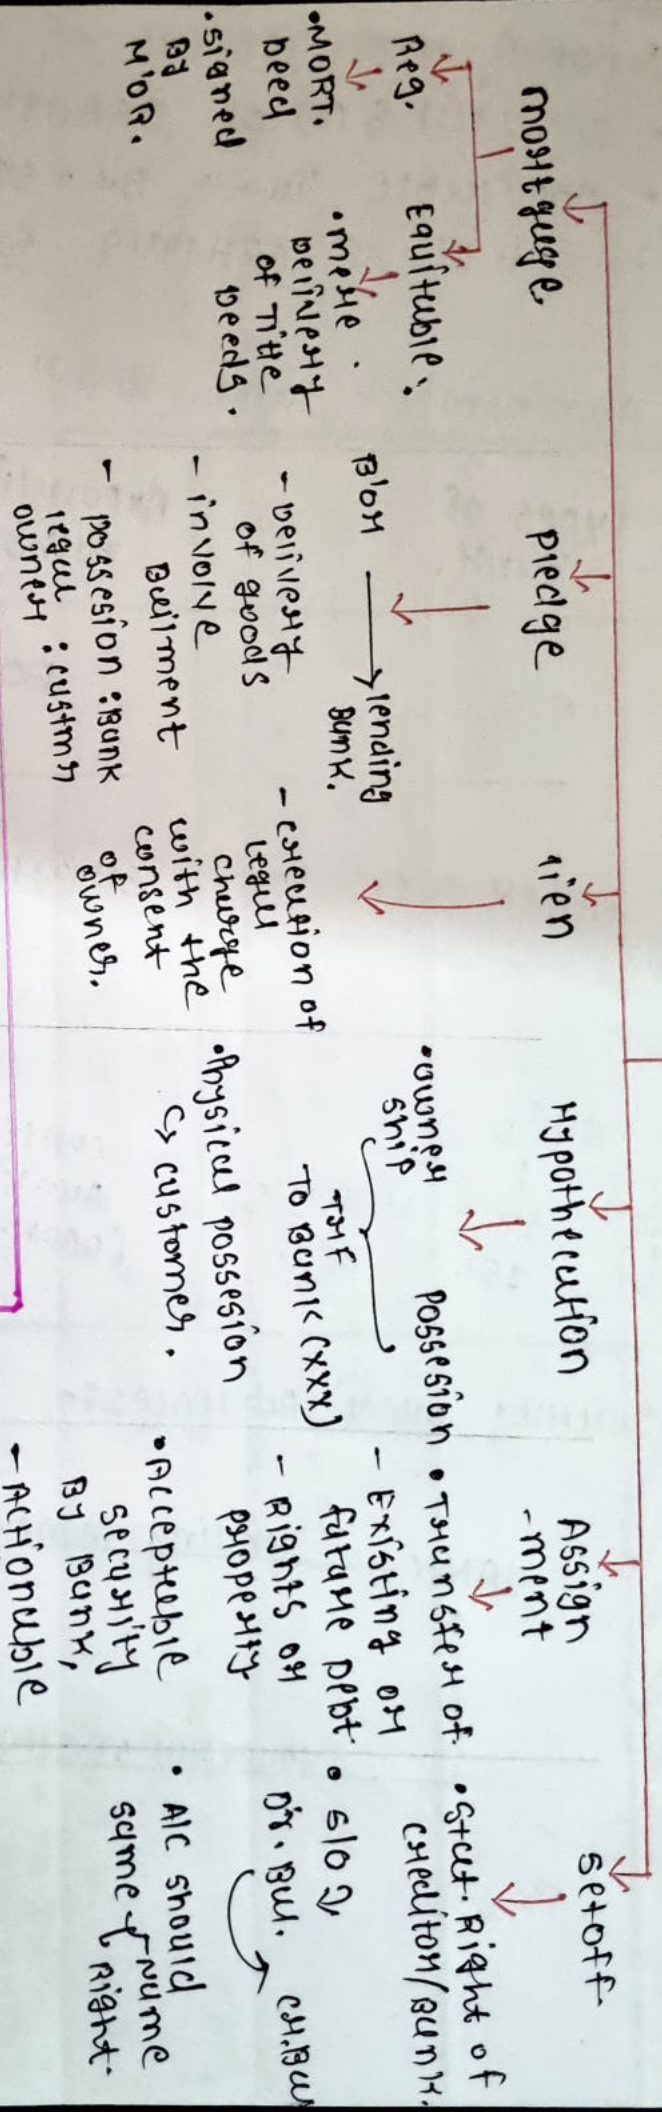 Mortguge
Reg.
• MORT.
Deed
• signed
By
M'OR.
Equituble.
• mere
Delivery
of Title
Deeds.
pledge
B'or → lending
Bunk.
- Delivery
of goods
- involve
Builment
- possesion : Bunk
legul : custmr
owner
lien
- creution of
legul
churge
with the
consent
of
owner.
Hypothecution
• owner
ship
possesion
TRF
To Bunk (xxx)
• Physicul possesion
↳ customer.
Assign
-ment
• Trunsfer of
- Existing or
future Debt
- Rights or
property
• Acceptuble
security
By Bunk,
- Actionuble
setoff
• stut. Right of
creditor/Bunk.
• S/O 2
Dr. Bul. Cr. Bul
• A/C should
same Nume
& Right.